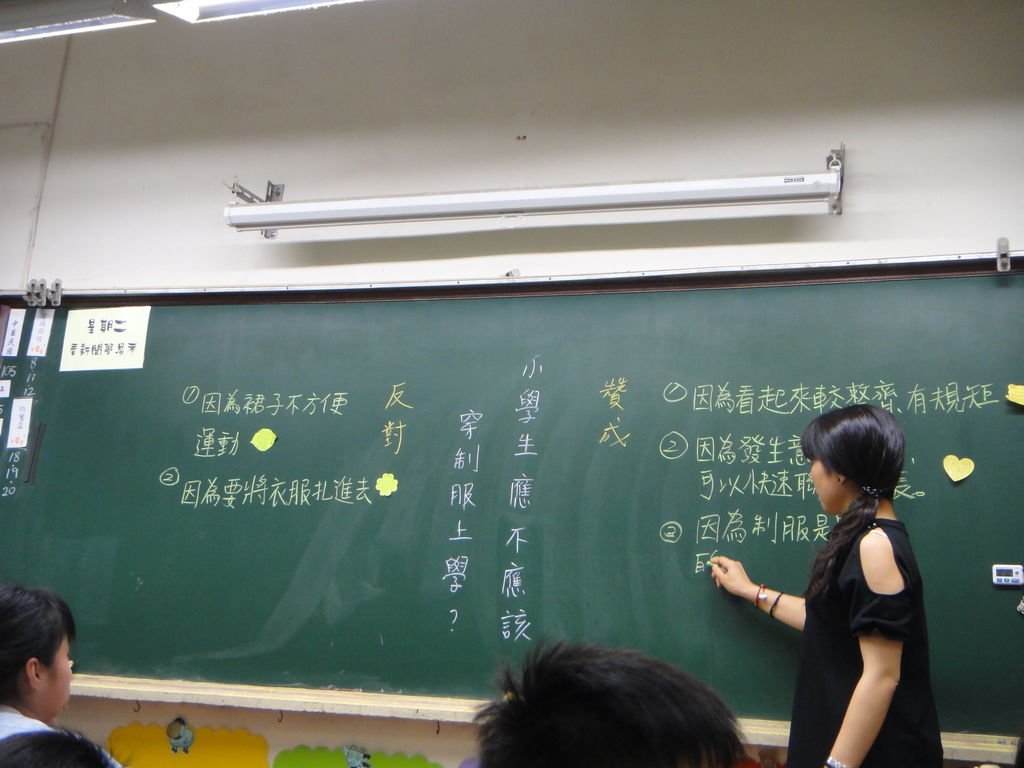 星期二
看新聞學思考
中華民國
105
8
11
12
18
19
20
小學生應不應該
穿制服上學？
贊成
①因為看起來較整齊、有規矩
②因為發生意
可以快速聯
長。
③因為制服是
反對
①因為裙子不方便
運動
②因為要將衣服扎進去